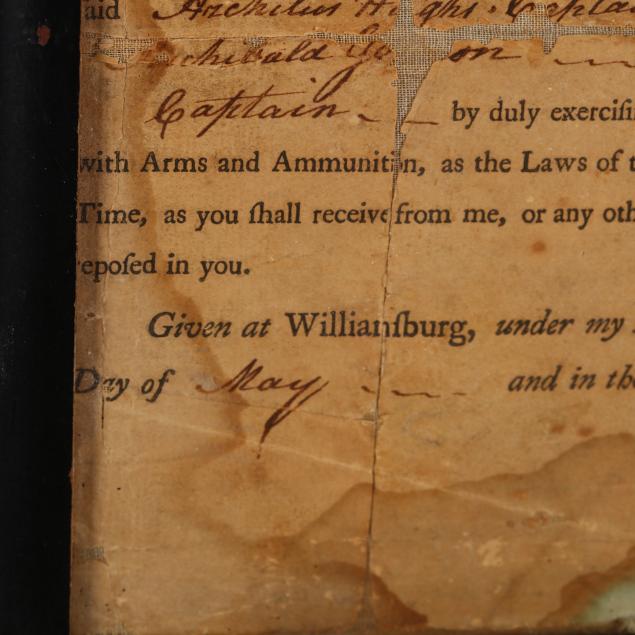 aid Archilus H ghs. Captai
Archibald Go on
Captain by duly exerciſi
with Arms and Ammunition, as the Laws of t
Time, as you ſhall receive from me, or any oth
epoſed in you.
Given at Williamſburg, under my
Day of May and in the